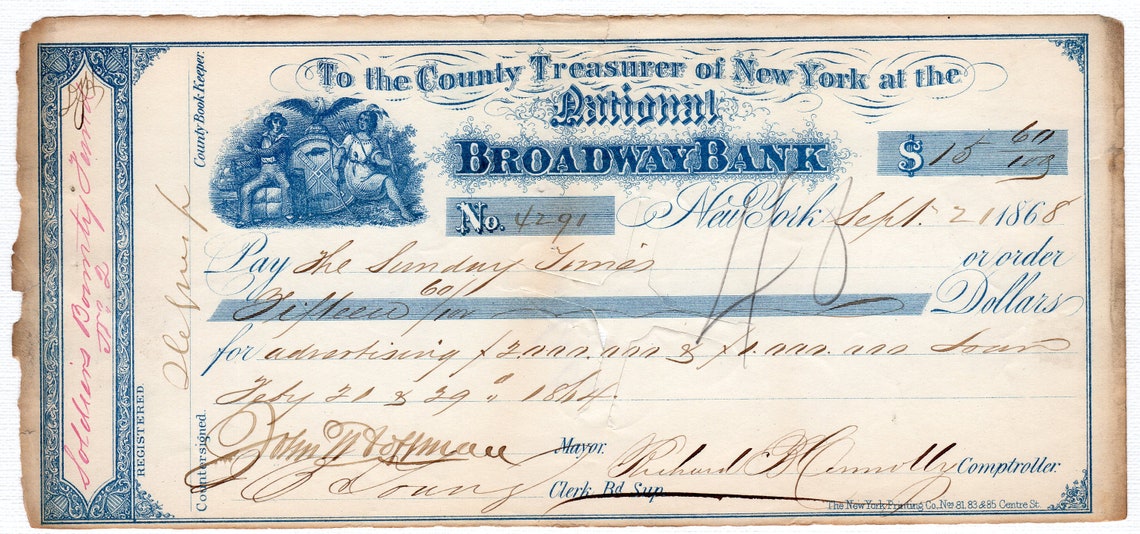 To the County Treasurer of New York at the
National
BROADWAY BANK
$ 15 60/100
No. 4291
New York Sept. 21 1868
Pay The Sunday Times or order
Fifteen 60/100 Dollars
for advertising $2,000,000 & $1,000,000 Loan
Feby 21 & 29" 1864
John T Hoffman Mayor.
Richard B Connolly Comptroller.
E Young Clerk Bd Sup.
The New York Printing Co. Nos 81, 83 & 85 Centre St.
County Book Keeper.
Countersigned.
REGISTERED
Soldiers Bounty Fund
No 2